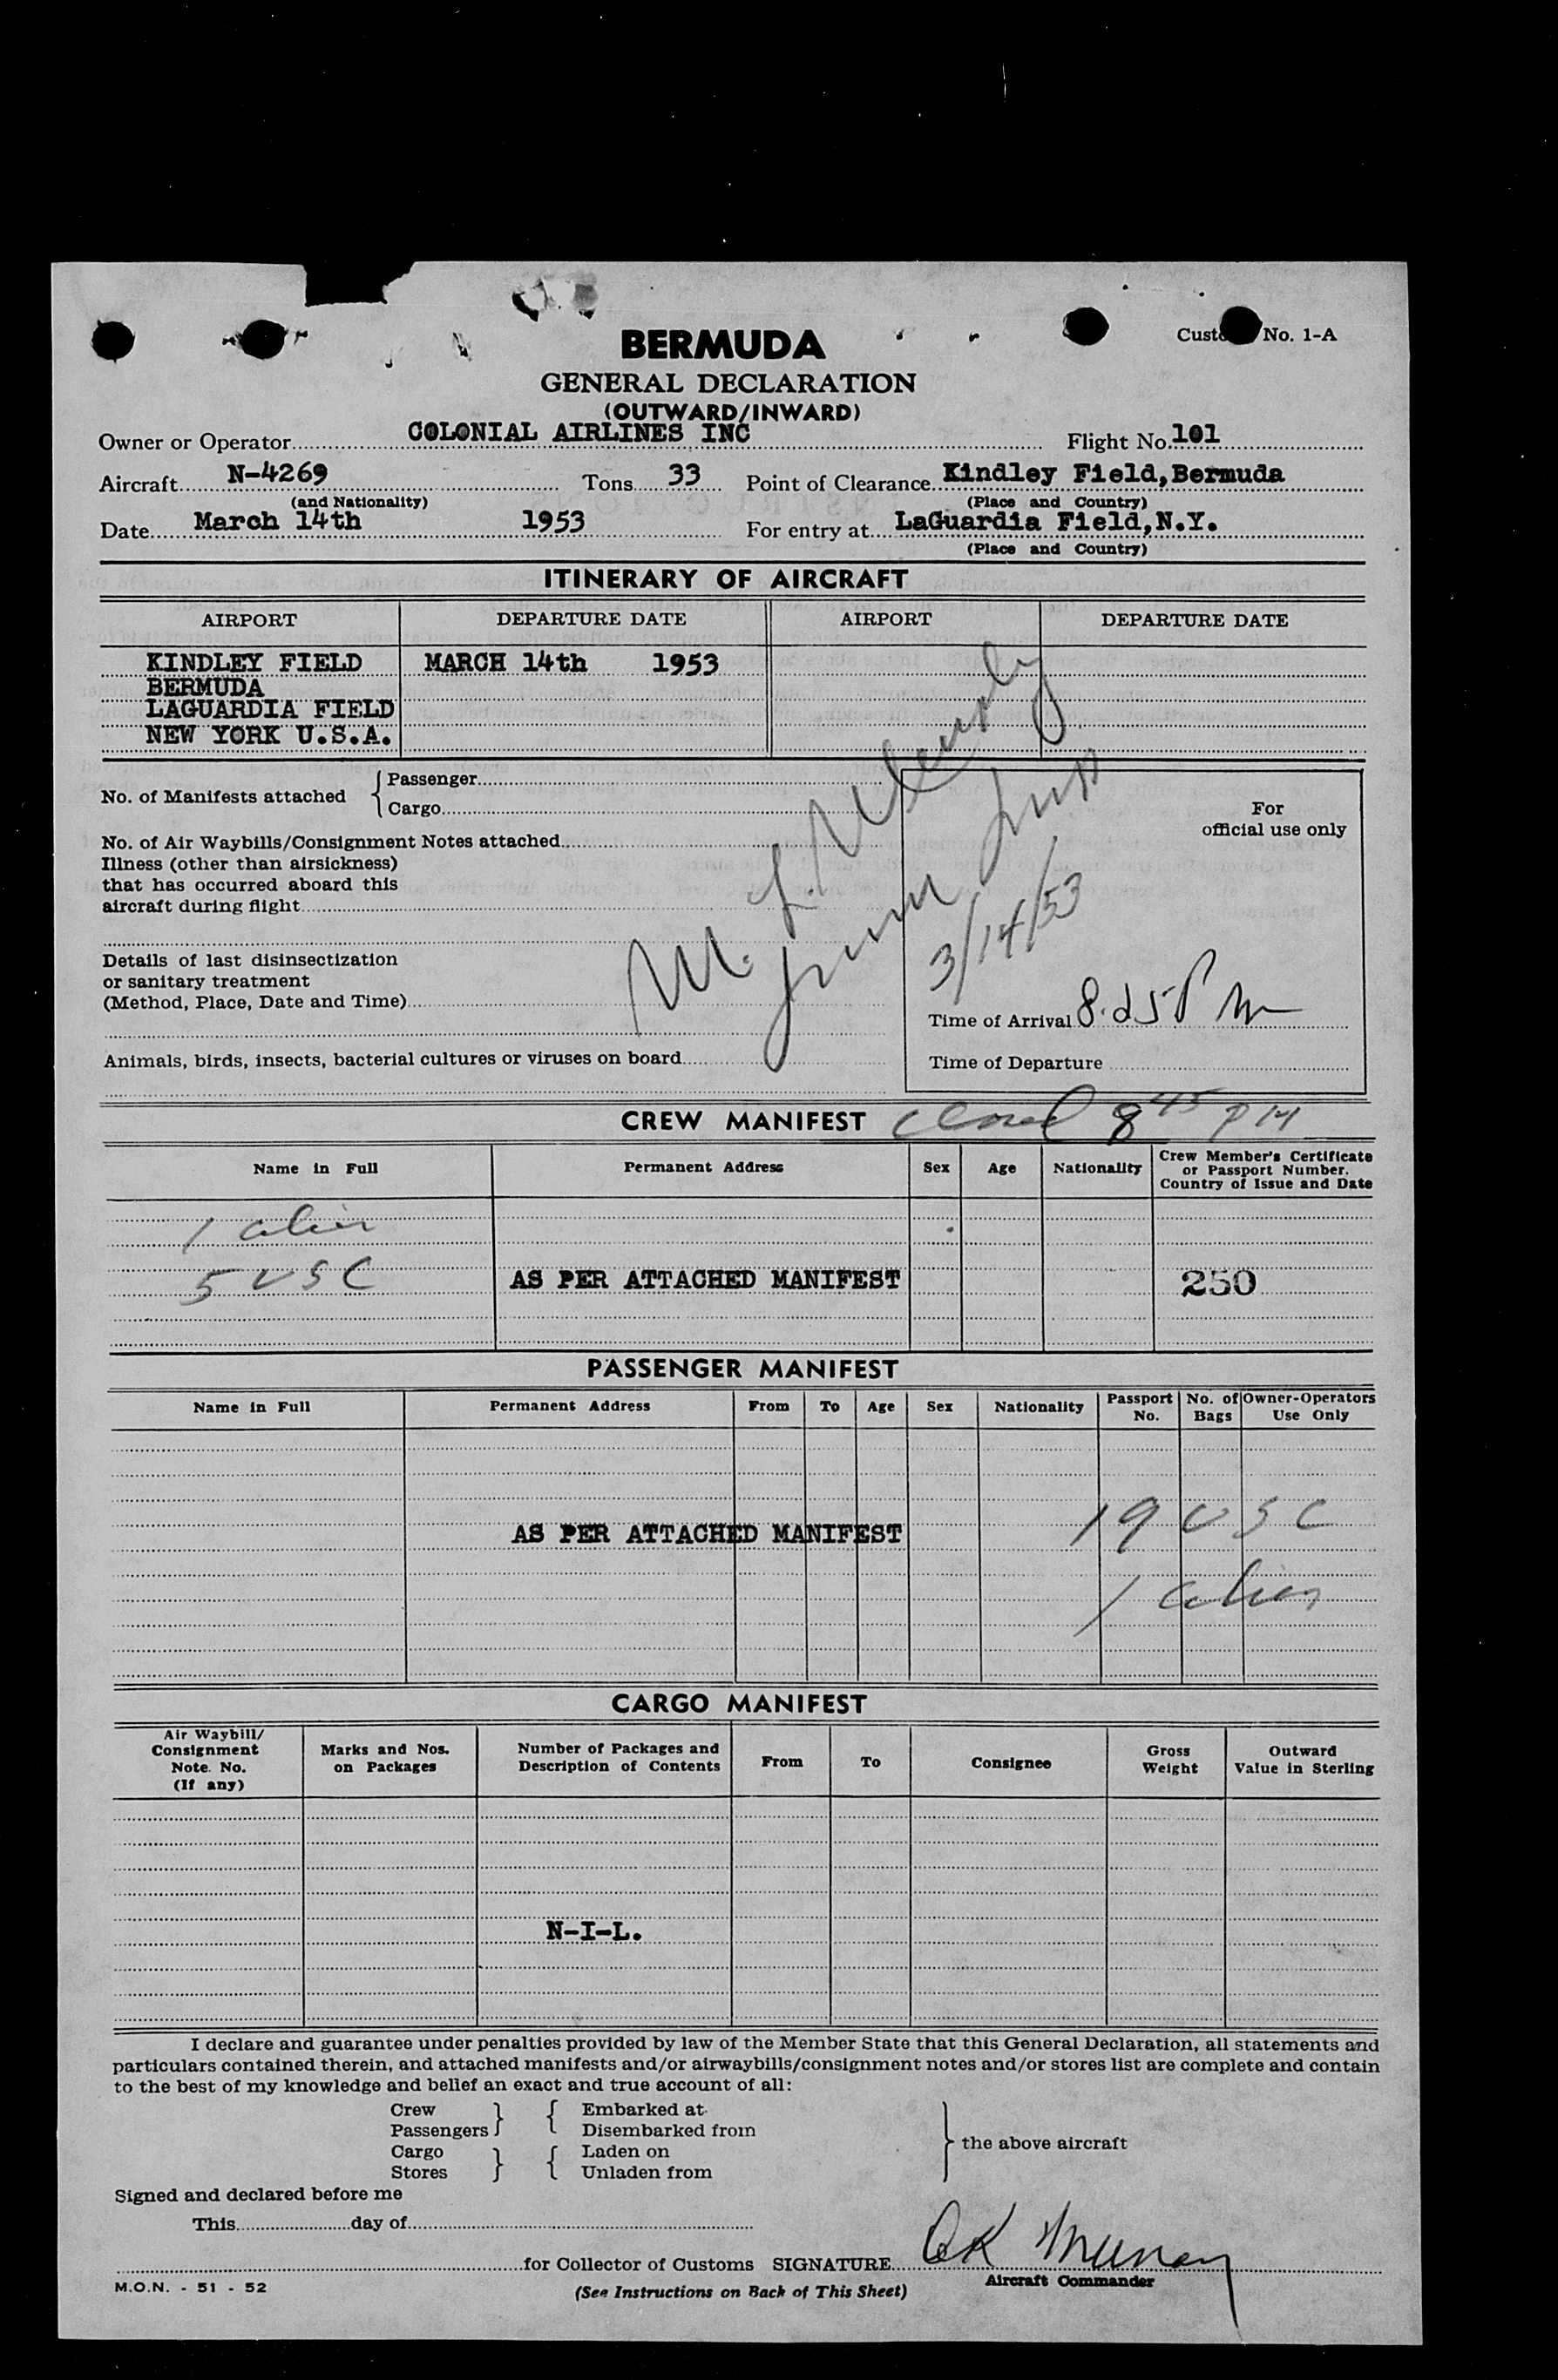 BERMUDA
No. 1-A
GENERAL DECLARATION
(OUTWARD/INWARD)
Owner or Operator COLONIAL AIRLINES INC Flight No. 101
Aircraft N-4269 Tons 33 Point of Clearance Kindley Field, Bermuda
(and Nationality) (Place and Country)
Date March 14th 1953 For entry at LaGuardia Field, N.Y.
(Place and Country)
ITINERARY OF AIRCRAFT
AIRPORT DEPARTURE DATE AIRPORT DEPARTURE DATE
KINDLEY FIELD MARCH 14th 1953
BERMUDA
LAGUARDIA FIELD
NEW YORK U.S.A.
No. of Manifests attached { Passenger
Cargo
For
official use only
No. of Air Waybills/Consignment Notes attached
Illness (other than airsickness)
that has occurred aboard this
aircraft during flight
3/14/53
Details of last disinsectization
or sanitary treatment
(Method, Place, Date and Time)
Time of Arrival 8.25 P m
Animals, birds, insects, bacterial cultures or viruses on board
Time of Departure
CREW MANIFEST closed 8 45 PM
Name in Full Permanent Address Sex Age Nationality Crew Member's Certificate
or Passport Number.
Country of Issue and Date
1 alien
5 USC AS PER ATTACHED MANIFEST 250
PASSENGER MANIFEST
Name in Full Permanent Address From To Age Sex Nationality Passport No. No. of Bags Owner-Operators Use Only
19 USC
AS PER ATTACHED MANIFEST
1 alien
CARGO MANIFEST
Air Waybill/
Consignment
Note. No.
(If any) Marks and Nos.
on Packages Number of Packages and
Description of Contents From To Consignee Gross
Weight Outward
Value in Sterling
N-I-L.
I declare and guarantee under penalties provided by law of the Member State that this General Declaration, all statements and
particulars contained therein, and attached manifests and/or airwaybills/consignment notes and/or stores list are complete and contain
to the best of my knowledge and belief an exact and true account of all:
Crew } { Embarked at
Passengers } { Disembarked from
} the above aircraft
Cargo } { Laden on
Stores } { Unladen from
Signed and declared before me
This day of
for Collector of Customs SIGNATURE
Aircraft Commander
M.O.N. - 51 - 52
(See Instructions on Back of This Sheet)